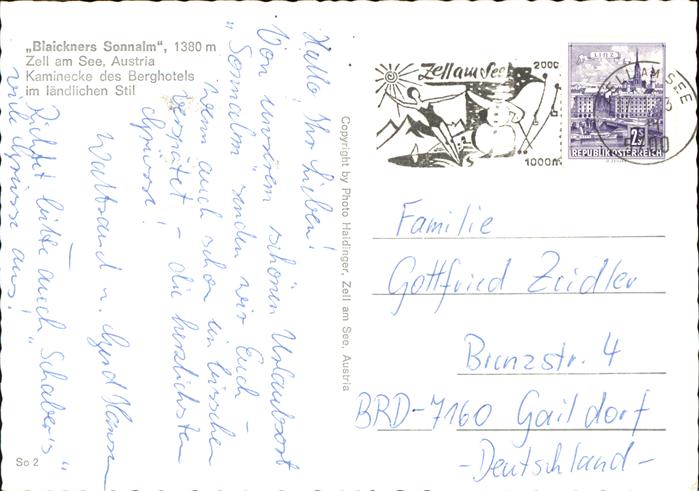 „Blaickners Sonnalm“, 1380 m
Zell am See, Austria
Kaminecke des Berghotels
im ländlichen Stil
Hallo! Ihr Lieben!
Von unserem schönen Urlaubsort
„Sonnalm“ senden wir Euch –
wenn auch schon ein bisschen
verspätet – die herzlichsten
Grüsse!
Waltraud u. Gerd Hansen
Richtet bitte auch „Schaber's“
viele Grüsse aus!
So 2
Copyright by Photo Haidinger, Zell am See, Austria
Zell am See
2000
1000m
ZELL AM SEE
LINZ
2 S
REPUBLIK ÖSTERREICH
Familie
Gottfried Zeidler
Brunzstr. 4
BRD-7160 Gaildorf
-Deutschland-